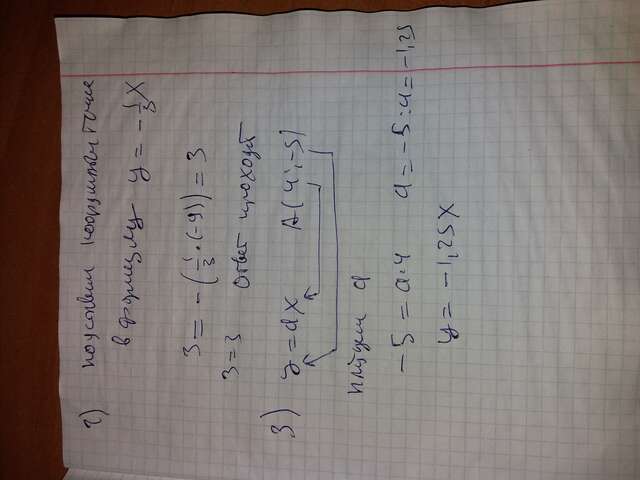 2) подставим координаты точки
в формулу y = -1/3 x
3 = -(1/3 · (-9)) = 3
3 = 3 Ответ проходят
3) y = ax A(4; -5)
найдем a
-5 = a·4 a = -5:4 = -1,25
y = -1,25x